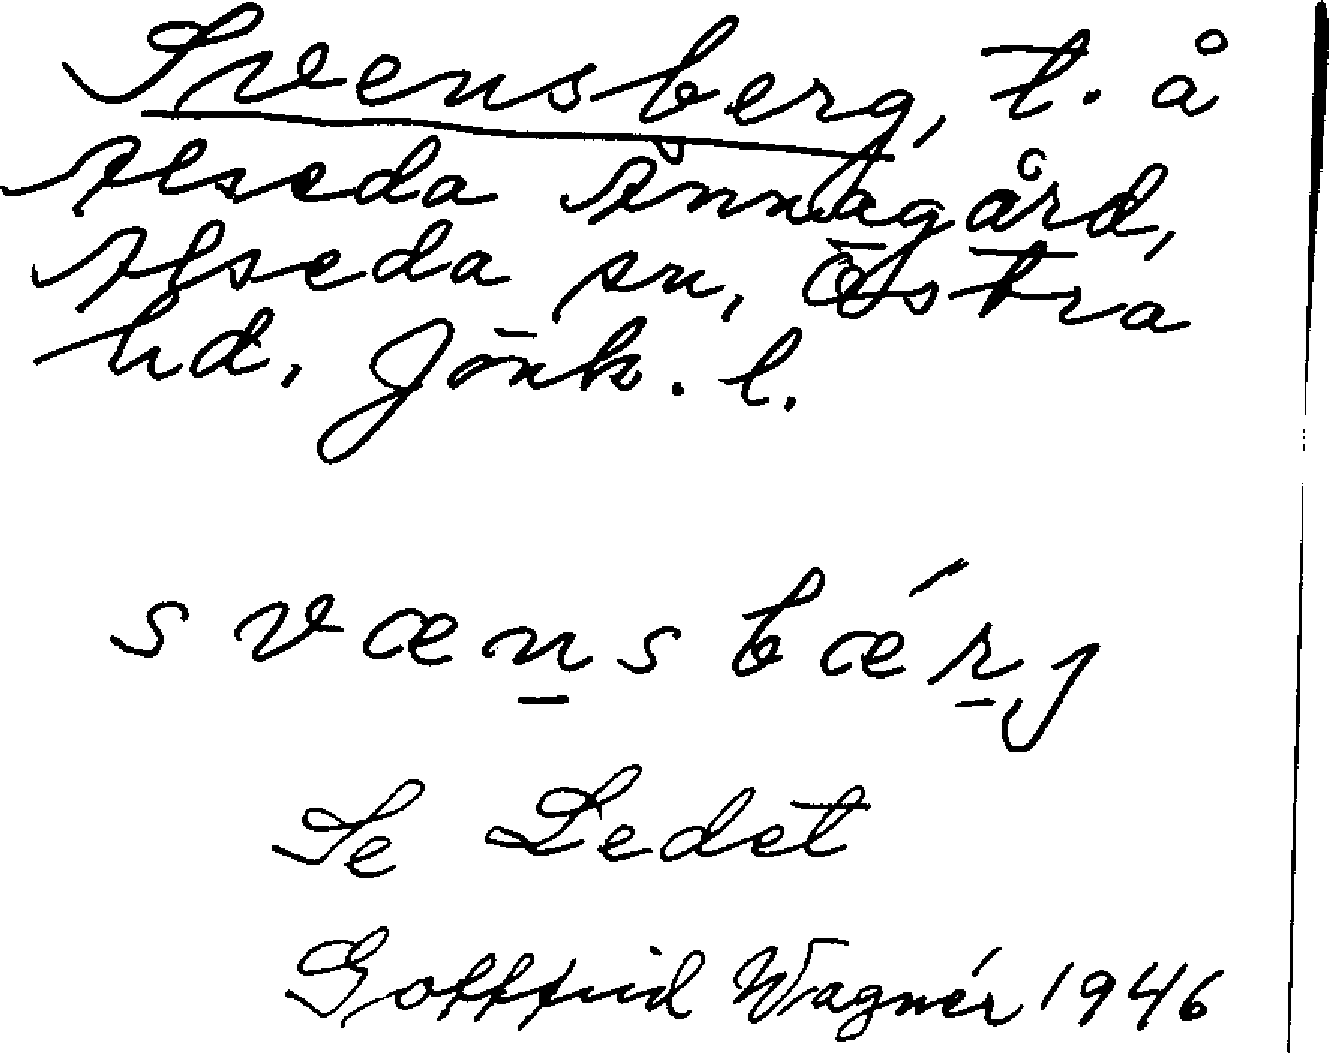 Svensberg, t. å
Alseda Ånnagård,
Alseda sn, Östra
hd, Jönk. l.
svænsbǽrj
Se Ledet
Gottfrid Wagnér 1946